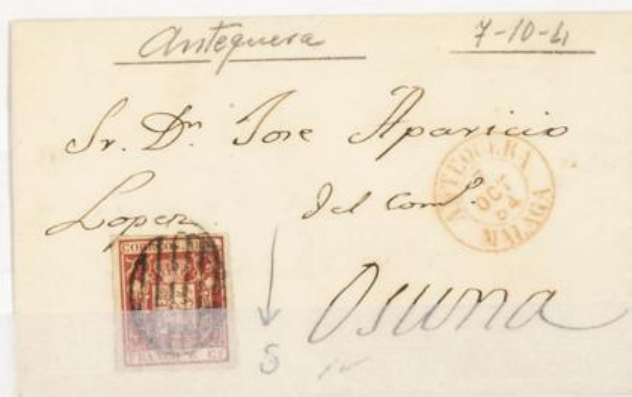 Antequera 7-10-
Sr. Dn. Jose Aparicio
Lopez. del Comº.
ANTEQUERA
OCT
54
MALAGA
CORREOS
Osuna
S